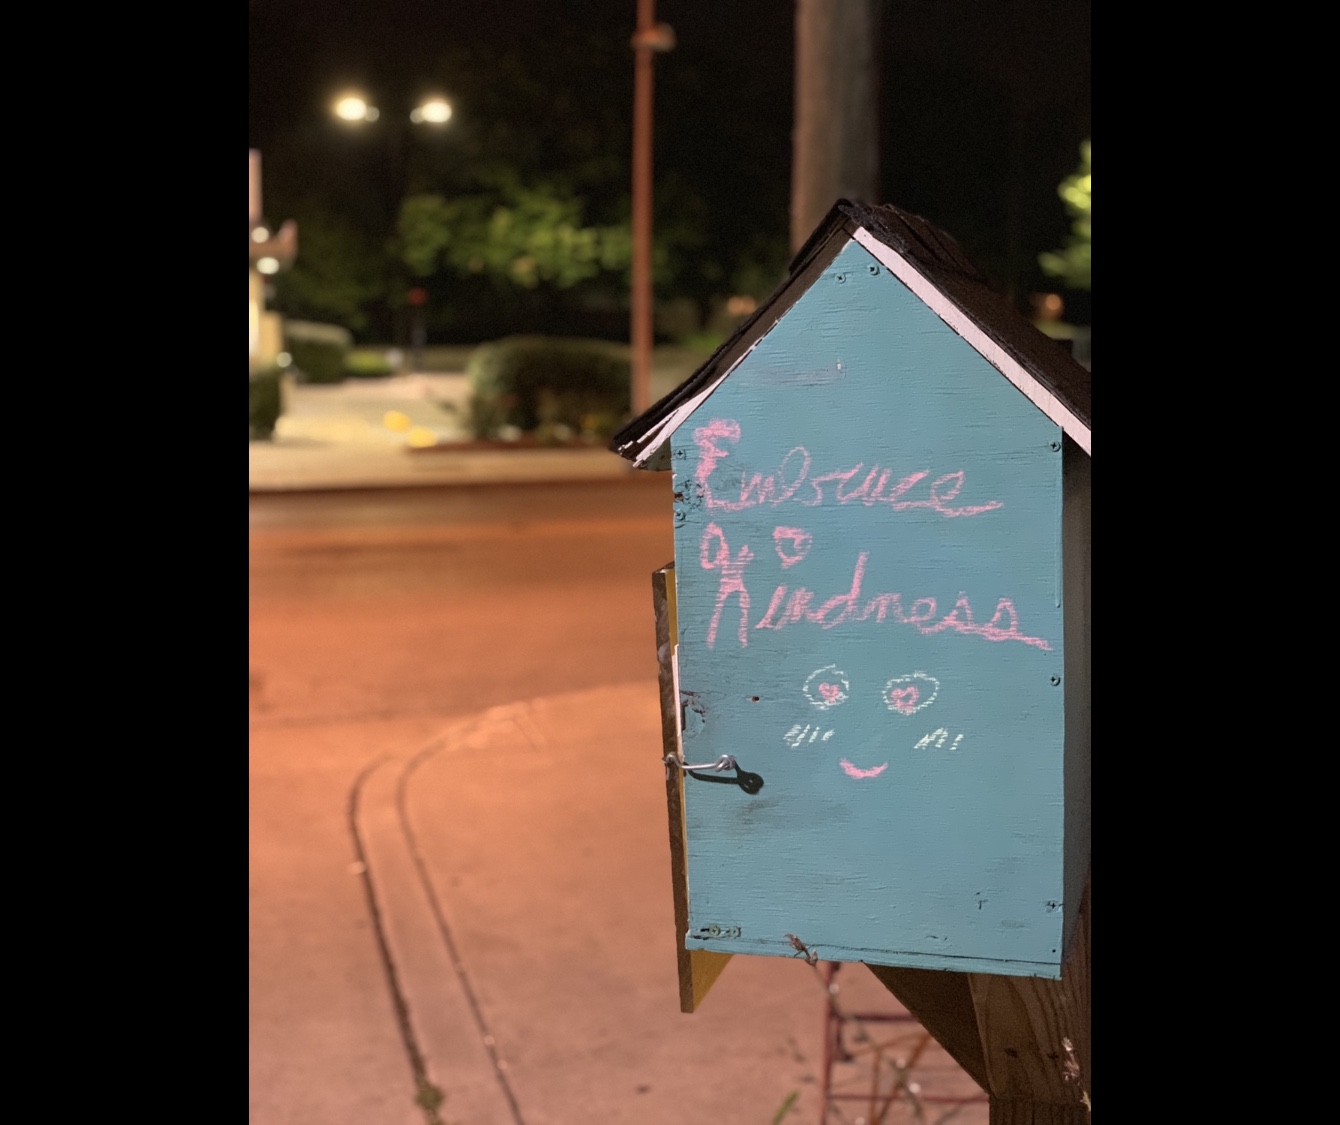 Embrace
Kindness